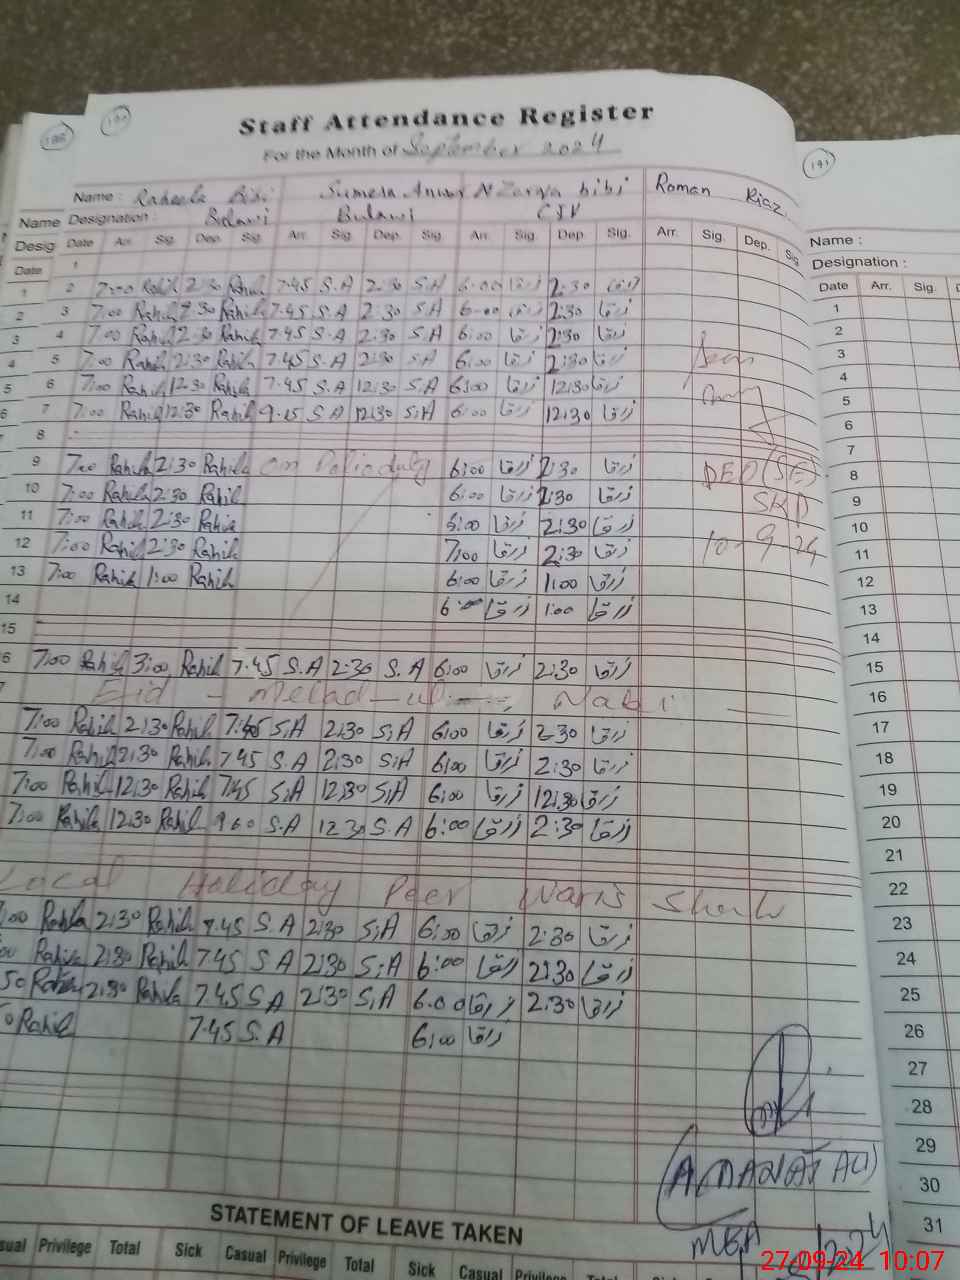 190
Staff Attendance Register
For the Month of September 2024
Name : Raheela Bibi Sumera Anwar Zarqa bibi Roman Riaz
Designation : Bulawi Bulawi
Date Arr. Sig. Dep. Sig. Arr. Sig. Dep. Sig. Arr. Sig. Dep. Sig. Arr. Sig. Dep. Sig
1
2 7:00 Rahil 2:30 Rahil 7.45 S.A 2:30 S.A 6:00 زرقا 2:30 زرقا
3 7:00 Rahil 2:30 Rahil 7.45 S.A 2:30 S.A 6:00 زرقا 2:30 زرقا
4 7:00 Rahil 2:30 Rahil 7.45 S.A 2:30 S.A 6:00 زرقا 2:30 زرقا
5 7:00 Rahil 2:30 Rahila 7.45 S.A 2:30 S.A 6:00 زرقا 2:30 زرقا
6 7:00 Rahil 12:30 Rahila 7.45 S.A 12:30 S.A 6:00 زرقا 12:30 زرقا
7 7:00 Rahil 12:30 Rahil S.A 12:30 S.A 6:00 زرقا 12:30 زرقا
8
9 7:00 Rahila 2:30 Rahila on Polio duty 6:00 زرقا 2:30 زرقا
10 7:00 Rahila 2:30 Rahil 6:00 زرقا 2:30 زرقا
11 7:00 Rahila 2:30 Rahila 6:00 زرقا 2:30 زرقا
12 7:00 Rahil 2:30 Rahila 7:00 زرقا 2:30 زرقا
13 7:00 Rahil 1:00 Rahila 6:00 زرقا 1:00 زرقا
14 6:00 زرقا 1:00 زرقا
15
DEO (SE)
SKP
10-9-24
7:00 Rahil 3:00 Rahil 7.45 S.A 2:30 S.A 6:00 زرقا 2:30 زرقا
Eid - Melad-ul- Nabi
7:00 Rahil 2:30 Rahil 7:45 S.A 2:30 S.A 6:00 زرقا 2:30 زرقا
7:00 Rahil 2:30 Rahil 7.45 S.A 2:30 S.A 6:00 زرقا 2:30 زرقا
7:00 Rahil 12:30 Rahil 7.45 S.A 12:30 S.A 6:00 زرقا 12:30 زرقا
7:00 Rahila 12:30 Rahil S.A 12:30 S.A 6:00 زرقا 2:30 زرقا
Local Holiday Peer Waris Shah
:00 Rahila 2:30 Rahil 7.45 S.A 2:30 S.A 6:00 زرقا 2:30 زرقا
Rahila 2:30 Rahil 7.45 S.A 2:30 S.A 6:00 زرقا 2:30 زرقا
50 Rahila 2:30 Rahila 7.45 S.A 2:30 S.A 6:00 زرقا 2:30 زرقا
Rahil 7.45 S.A 6:00 زرقا
(AMANAT ALI)
MEA
STATEMENT OF LEAVE TAKEN
sual Privilege Total Sick Casual Privilege Total Sick Casual Privilege Total
Name
Desig
Date
1
2
3
4
5
6
191
Name :
Designation :
Date Arr. Sig.
1
2
3
4
5
6
7
8
9
10
11
12
13
14
15
16
17
18
19
20
21
22
23
24
25
26
27
28
29
30
31
27-09-24 10:07